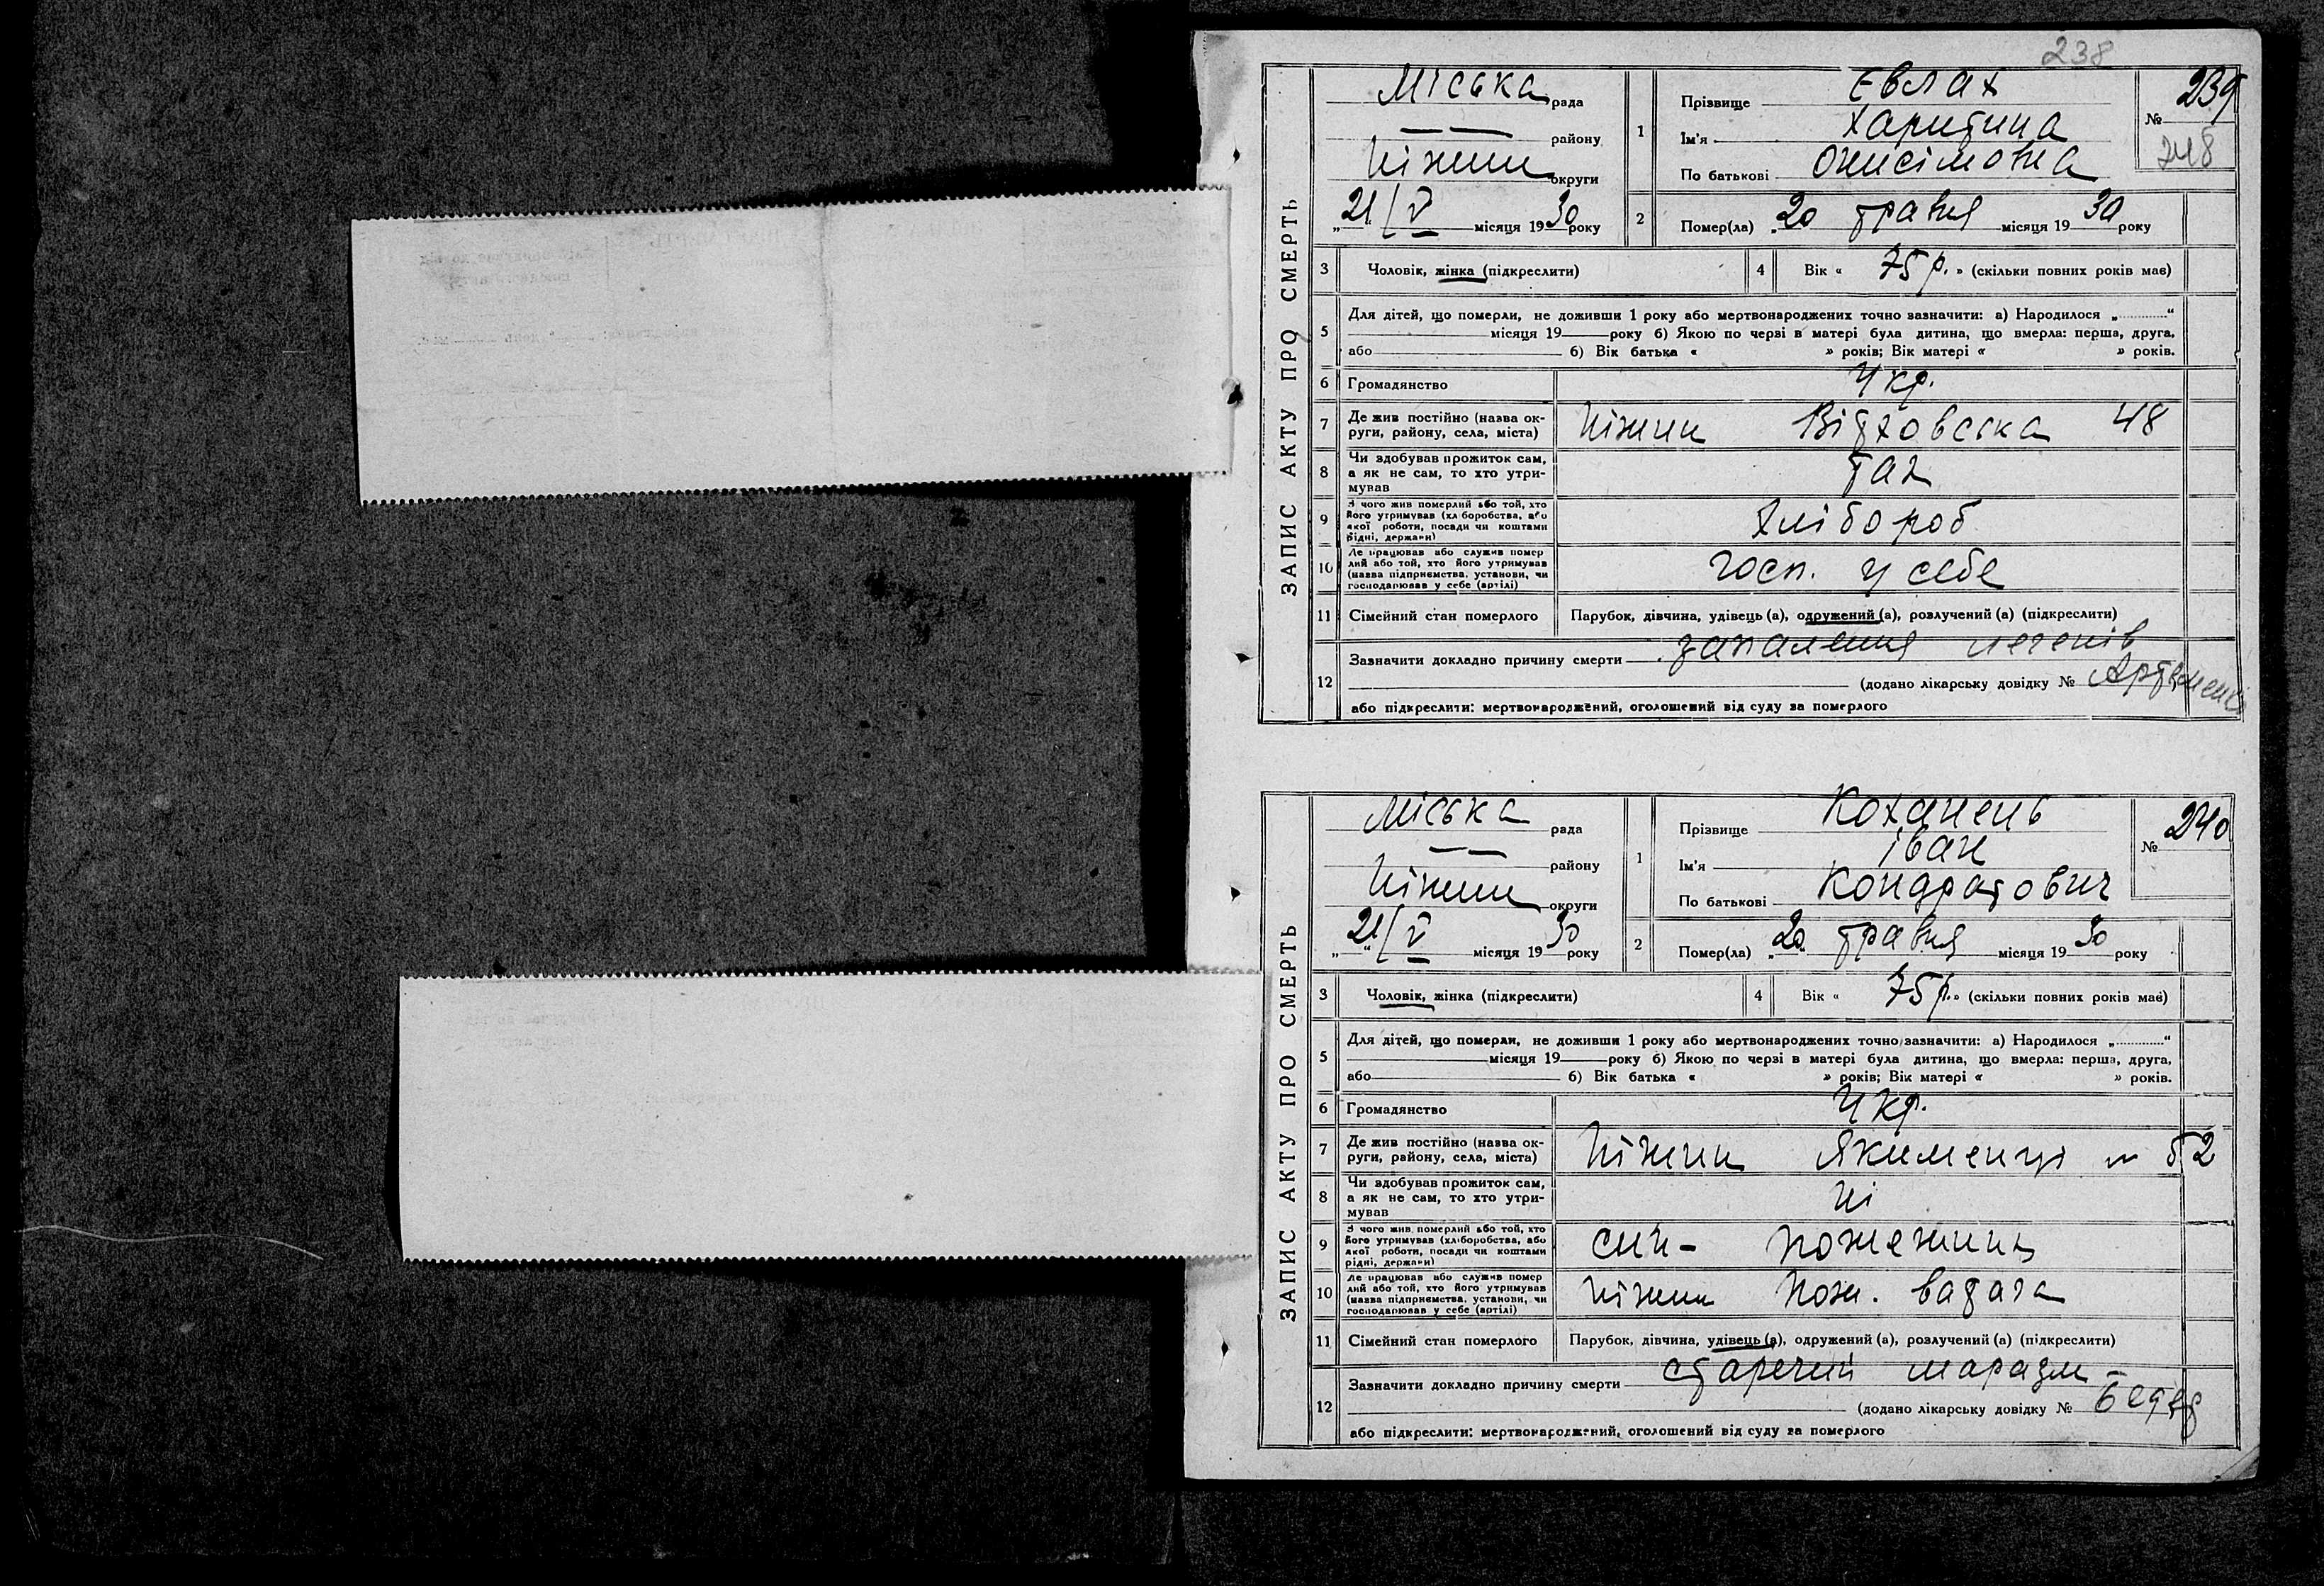 238
ЗАПИС АКТУ ПРО СМЕРТЬ
Міська рада
— — району
Ніжин округи
„21/V“ місяця 1930 року
1
Прізвище Євлах
Ім'я Харитина
По батькові Онисімовна
№ 239
248
2 Помер(ла) „20 травня місяця 1930 року
3 Чоловік, жінка (підкреслити)
4 Вік « 75 р. » (скільки повних років має)
5 Для дітей, що померли, не доживши 1 року або мертвонароджених точно зазначити: а) Народилося „............“
місяця 19 року б) Якою по черзі в матері була дитина, що вмерла: перша, друга,
або б) Вік батька « » років; Вік матері « » років.
6 Громадянство Укр.
7 Де жив постійно (назва ок-
руги, району, села, міста) Ніжин 48
8 Чи здобував прожиток сам,
а як не сам, то хто утри-
мував так
9 З чого жив померлий або той, хто
його утримував (хліборобства, або
якої роботи, посади чи коштами
рідні, держави) Хлібороб
10 Де працював або служив помер
лий або той, хто його утримував
(назва підприємства, установи, чи
господарював у себе (артілі) госп. у себе
11 Сімейний стан померлого Парубок, дівчина, удівець (а), одружений (а), розлучений (а) (підкреслити)
12 Зазначити докладно причину смерти запалення легенів
(додано лікарську довідку №
або підкреслити: мертвонароджений, оголошений від суду за померлого
ЗАПИС АКТУ ПРО СМЕРТЬ
Міська рада
— — району
Ніжин округи
„21/V“ місяця 1930 року
1
Прізвище Коханець
Ім'я Іван
По батькові Кондратович
№ 240
2 Помер(ла) „20 травня місяця 1930 року
3 Чоловік, жінка (підкреслити)
4 Вік « 75 р. » (скільки повних років має)
5 Для дітей, що померли, не доживши 1 року або мертвонароджених точно зазначити: а) Народилося „............“
місяця 19 року б) Якою по черзі в матері була дитина, що вмерла: перша, друга,
або б) Вік батька « » років; Вік матері « » років.
6 Громадянство Укр.
7 Де жив постійно (назва ок-
руги, району, села, міста) Ніжин 52
8 Чи здобував прожиток сам,
а як не сам, то хто утри-
мував ні
9 З чого жив померлий або той, хто
його утримував (хліборобства, або
якої роботи, посади чи коштами
рідні, держави) син - пожежник
10 Де працював або служив помер
лий або той, хто його утримував
(назва підприємства, установи, чи
господарював у себе (артілі) Ніжин Пож. ватага
11 Сімейний стан померлого Парубок, дівчина, удівець (а), одружений (а), розлучений (а) (підкреслити)
12 Зазначити докладно причину смерти старечий маразм –
(додано лікарську довідку №
або підкреслити: мертвонароджений, оголошений від суду за померлого